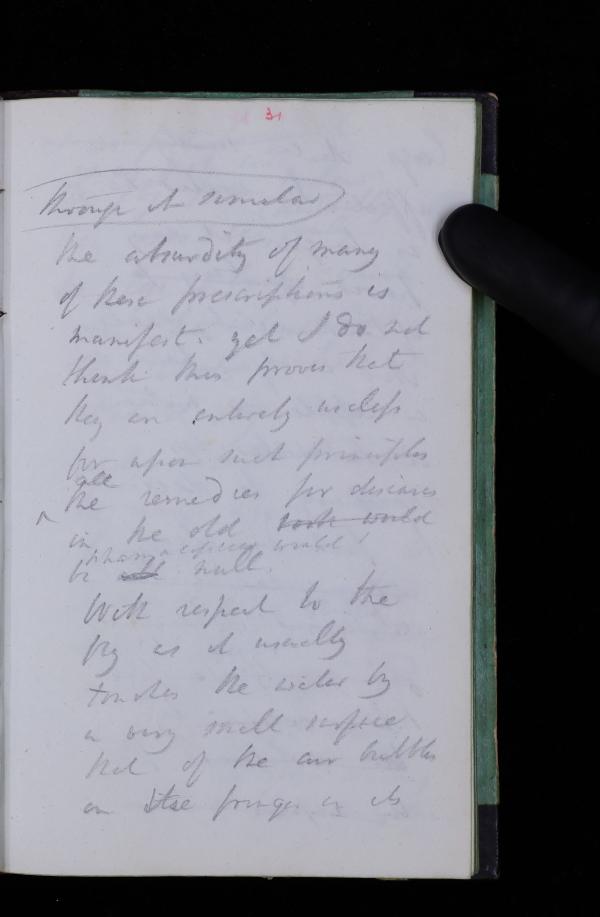 31
through it
the absurdity of many
of these prescriptions is
manifest. yet I do not
think this proves that
they are entirely useless
for upon such principles
all
the remedies for diseases
in the old book would
pharmacopeias would
be all null.
With respect to the
fly as it usually
touches the water by
a very small surface
that of the air bubbles
on the fringes in its